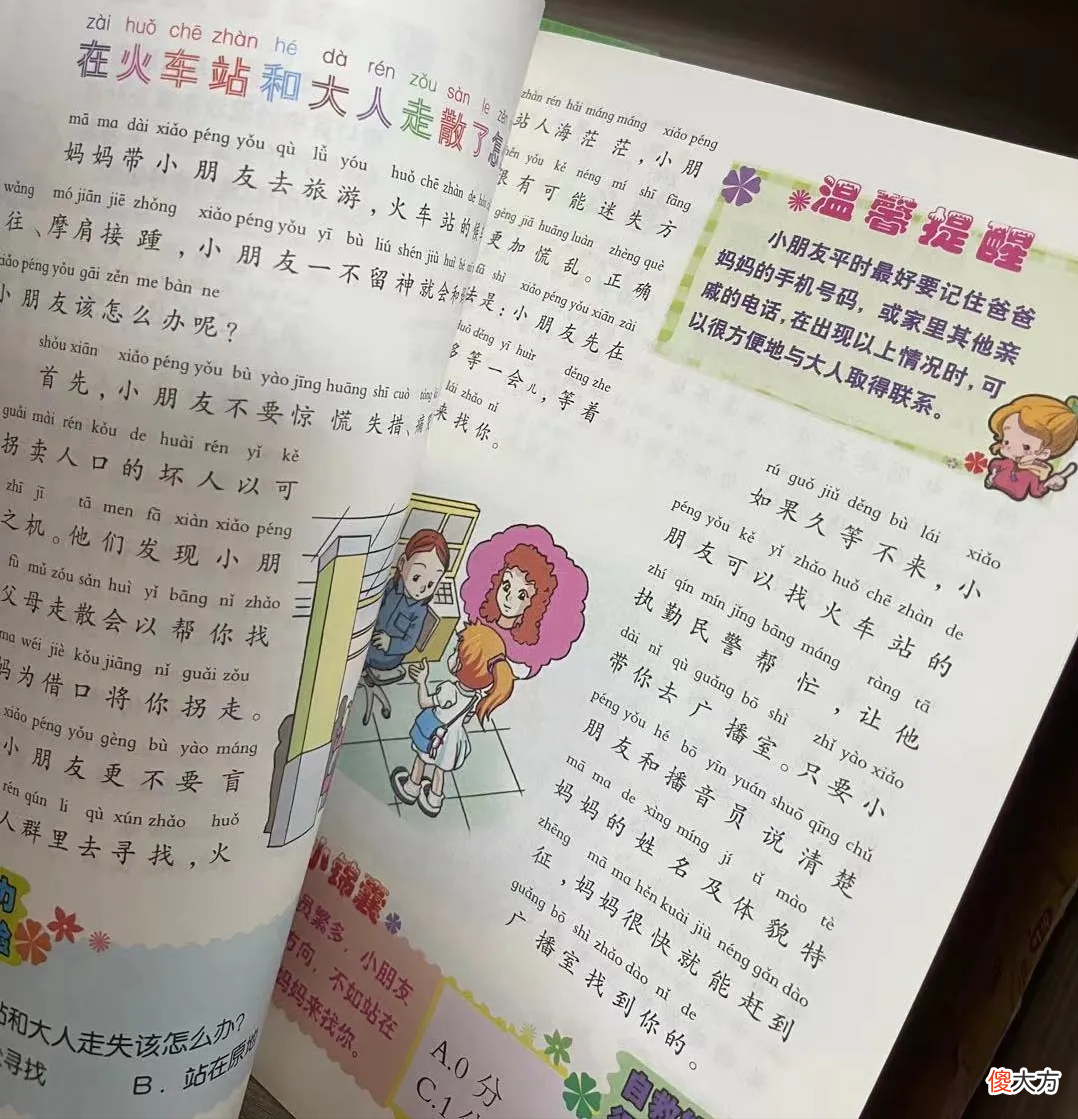 zài huǒ chē zhàn hé dà rén zǒu sàn le zěn
在火车站和大人走散了怎
mā ma dài xiǎo péng yǒu qù lǚ yóu huǒ chē zhàn de
妈妈带小朋友去旅游，火车站的候车
wǎng mó jiān jiē zhǒng xiǎo péng yǒu yī bù liú shén jiù huì hé
往、摩肩接踵，小朋友一不留神就会和
xiǎo péng yǒu gāi zěn me bàn ne
小朋友该怎么办呢？
shǒu xiān xiǎo péng yǒu bù yào jīng huāng shī cuò
首先，小朋友不要惊慌失措、痛
guǎi mài rén kǒu de huài rén yǐ kě
拐卖人口的坏人以可
zhī jī tā men fā xiàn xiǎo péng
之机。他们发现小朋
fù mǔ zǒu sǎn huì yǐ bāng nǐ zhǎo
父母走散会以帮你找
ma wéi jiè kǒu jiāng nǐ guǎi zǒu
妈为借口将你拐走。
xiǎo péng yǒu gèng bù yào máng
小朋友更不要盲
rén qún li qù xún zhǎo huǒ
人群里去寻找，火
站和大人走失该怎么办？
寻找
B．站在原地
zhàn rén hǎi máng máng xiǎo péng
站人海茫茫，小朋
hěn yǒu kě néng mí shī fāng
很有可能迷失方
gèng jiā huāng luàn zhèng què
更加慌乱。正确
fǎ shì xiǎo péng yǒu xiān zài
法是：小朋友先在
duō děng yī huìr děng zhe
多等一会儿，等着
lái zhǎo nǐ
来找你。
温馨提醒
小朋友平时最好要记住爸爸
妈妈的手机号码，或家里其他亲
戚的电话，在出现以上情况时，可
以很方便地与大人取得联系。
rú guǒ jiǔ děng bù lái xiǎo
如果久等不来，小
péng yǒu kě yǐ zhǎo huǒ chē zhàn de
朋友可以找火车站的
zhí qín mín jǐng bāng máng ràng tā
执勤民警帮忙，让他
dài nǐ qù guǎng bō shì zhǐ yào xiǎo
带你去广播室。只要小
péng yǒu hé bō yīn yuán shuō qīng chǔ
朋友和播音员说清楚
mā ma de xìng míng jí tǐ mào tè
妈妈的姓名及体貌特
zhēng mā ma hěn kuài jiù néng gǎn dào
征，妈妈很快就能赶到
guǎng bō shì zhǎo dào nǐ de
广播室找到你的。
小锦囊
员繁多，小朋友
方向，不如站在
妈妈来找你。
A.0 分
C.1
自救
傻大方